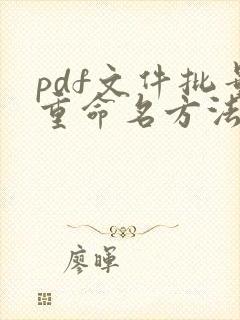 pdf文件批量
重命名方法
廖晖